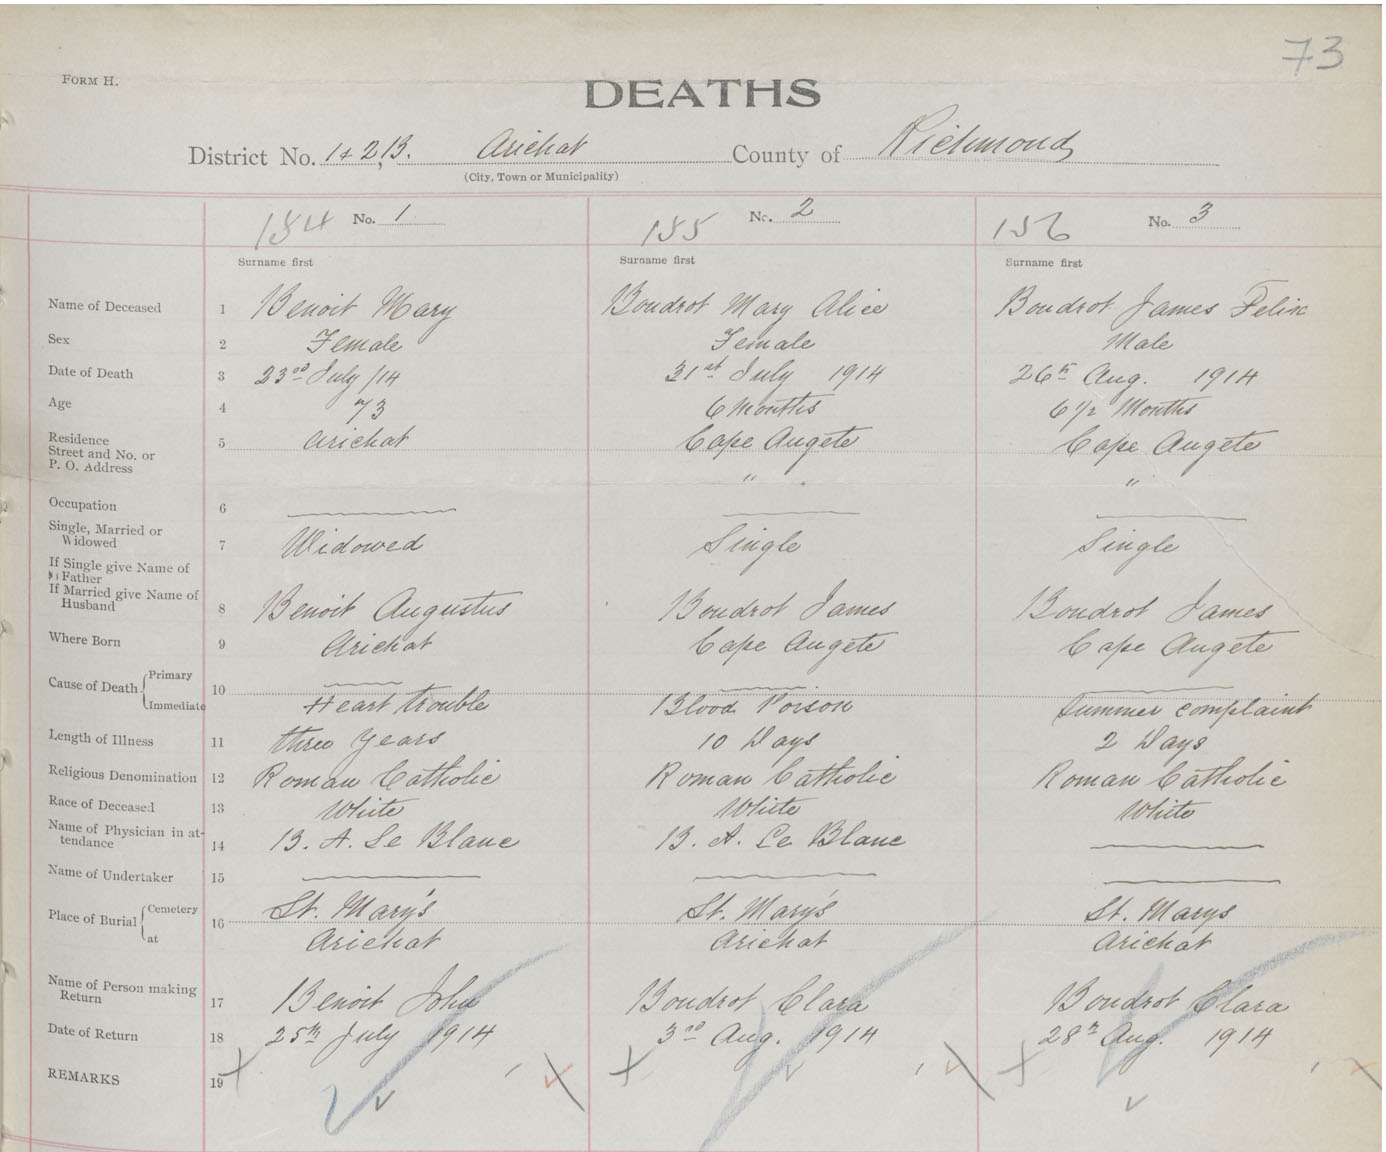 73
FORM H.
DEATHS
District No. 1+2, B. Arichat County of Richmond
(City, Town or Municipality)
184 No. 1 185 No. 2 186 No. 3
Surname first Surname first Surname first
Name of Deceased 1 Benoit Mary Boudrot Mary Alice Boudrot James Felix
Sex 2 Female Female Male
Date of Death 3 23rd July /14 31st July 1914 26th Aug. 1914
Age 4 73 6 Months 6 1/2 Months
Residence Street and No. or P. O. Address 5 Arichat Cape Augete Cape Augete
" "
Occupation 6
Single, Married or Widowed 7 Widowed Single Single
If Single give Name of Father
If Married give Name of Husband 8 Benoit Augustus Boudrot James Boudrot James
Where Born 9 Arichat Cape Augete Cape Augete
Cause of Death Primary 10
Immediate Heart trouble Blood Poison Summer complaint
Length of Illness 11 three years 10 Days 2 Days
Religious Denomination 12 Roman Catholic Roman Catholic Roman Catholic
Race of Deceased 13 White White White
Name of Physician in attendance 14 B. A. Le Blanc B. A. Le Blanc
Name of Undertaker 15
Place of Burial Cemetery 16 St. Mary's St. Mary's St. Marys
at Arichat Arichat Arichat
Name of Person making Return 17 Benoit John Boudrot Clara Boudrot Clara
Date of Return 18 25th July 1914 3rd Aug. 1914 28th Aug. 1914
REMARKS 19